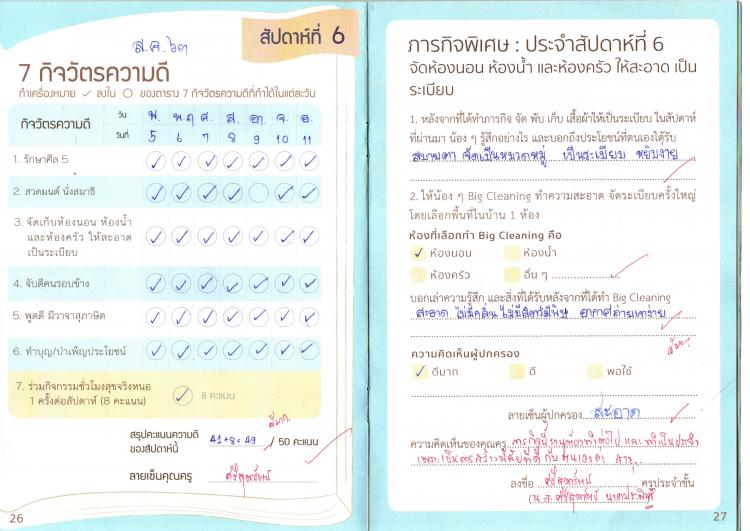 ส.ค. ๖๓
สัปดาห์ที่ 6
7 กิจวัตรความดี
ทำเครื่องหมาย ✓ ลงใน ○ ของตาราง 7 กิจวัตรความดีที่ทำได้ในแต่ละวัน
กิจวัตรความดี
วัน พ. พฤ ศ. ส. อา. จ. อ.
วันที่ 5 6 7 8 9 10 11
1. รักษาศีล 5
2. สวดมนต์ นั่งสมาธิ
3. จัดเก็บห้องนอน ห้องน้ำ
และห้องครัว ให้สะอาด
เป็นระเบียบ
4. จับดีคนรอบข้าง
5. พูดดี มีวาจาสุภาษิต
6. ทำบุญ/บำเพ็ญประโยชน์
7. ร่วมกิจกรรมชั่วโมงสุขจริงหนอ
1 ครั้งต่อสัปดาห์ (8 คะแนน)
✓ 8 คะแนน
ดีมาก
สรุปคะแนนความดี
ของสัปดาห์นี้ 41+8= 49 / 50 คะแนน
ลายเซ็นคุณครู
26
ภารกิจพิเศษ : ประจำสัปดาห์ที่ 6
จัดห้องนอน ห้องน้ำ และห้องครัว ให้สะอาด เป็น
ระเบียบ
1. หลังจากที่ได้ทำภารกิจ จัด พับ เก็บ เสื้อผ้าให้เป็นระเบียบ ในสัปดาห์
ที่ผ่านมา น้อง ๆ รู้สึกอย่างไร และบอกถึงประโยชน์ที่ตนเองได้รับ
สบายตา จัดเป็นหมวดหมู่ เป็นระเบียบ หยิบง่าย
2. ให้น้อง ๆ Big Cleaning ทำความสะอาด จัดระเบียบครั้งใหญ่
โดยเลือกพื้นที่ในบ้าน 1 ห้อง
ห้องที่เลือกทำ Big Cleaning คือ
✓ ห้องนอน ห้องน้ำ
ห้องครัว อื่น ๆ
บอกเล่าความรู้สึก และสิ่งที่ได้รับหลังจากที่ได้ทำ Big Cleaning
สะอาด ไม่มีกลิ่น ไม่มีสัตว์มีพิษ อากาศถ่ายเทง่าย
ความคิดเห็นผู้ปกครอง
✓ ดีมาก ดี พอใช้
ลายเซ็นผู้ปกครอง สะอาด
ความคิดเห็นของคุณครู
ลงชื่อ ครูประจำชั้น
27